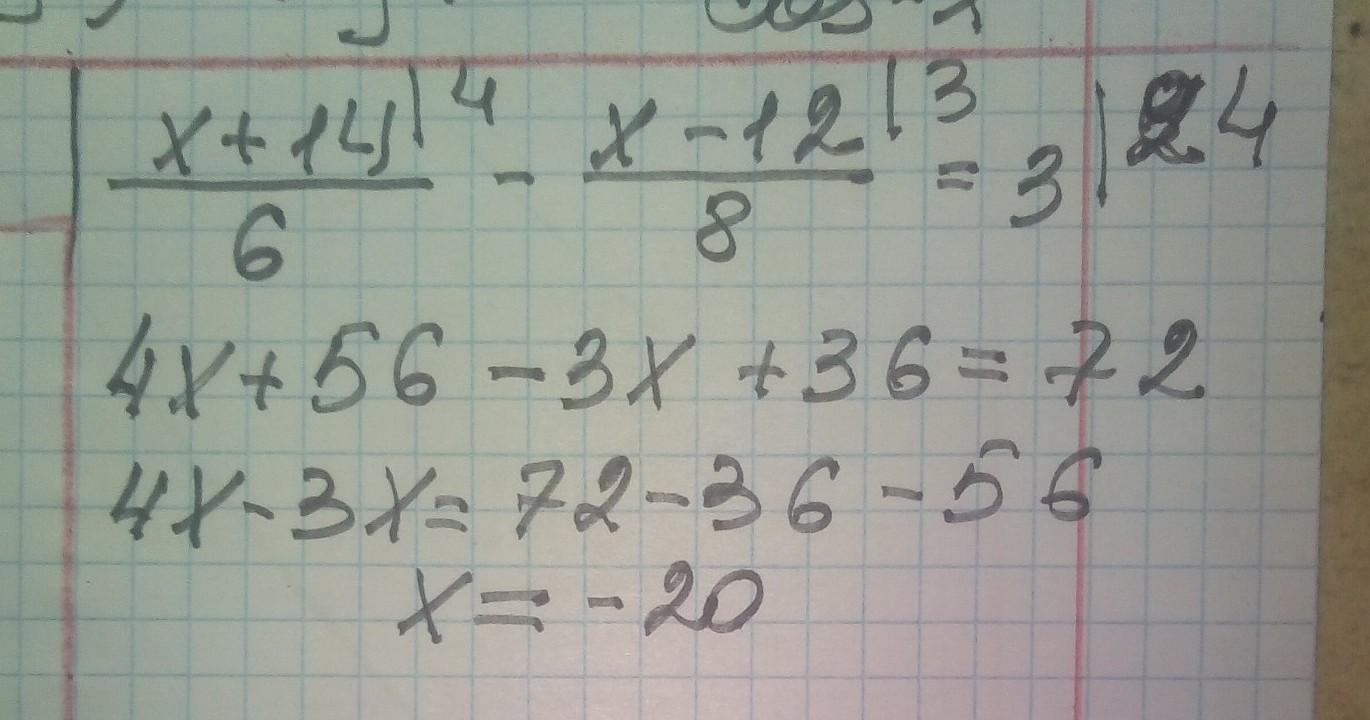 cos
x+14|4 / 6 - x-12|3 / 8 = 3|24
4x+56-3x+36=72
4x-3x=72-36-56
x=-20